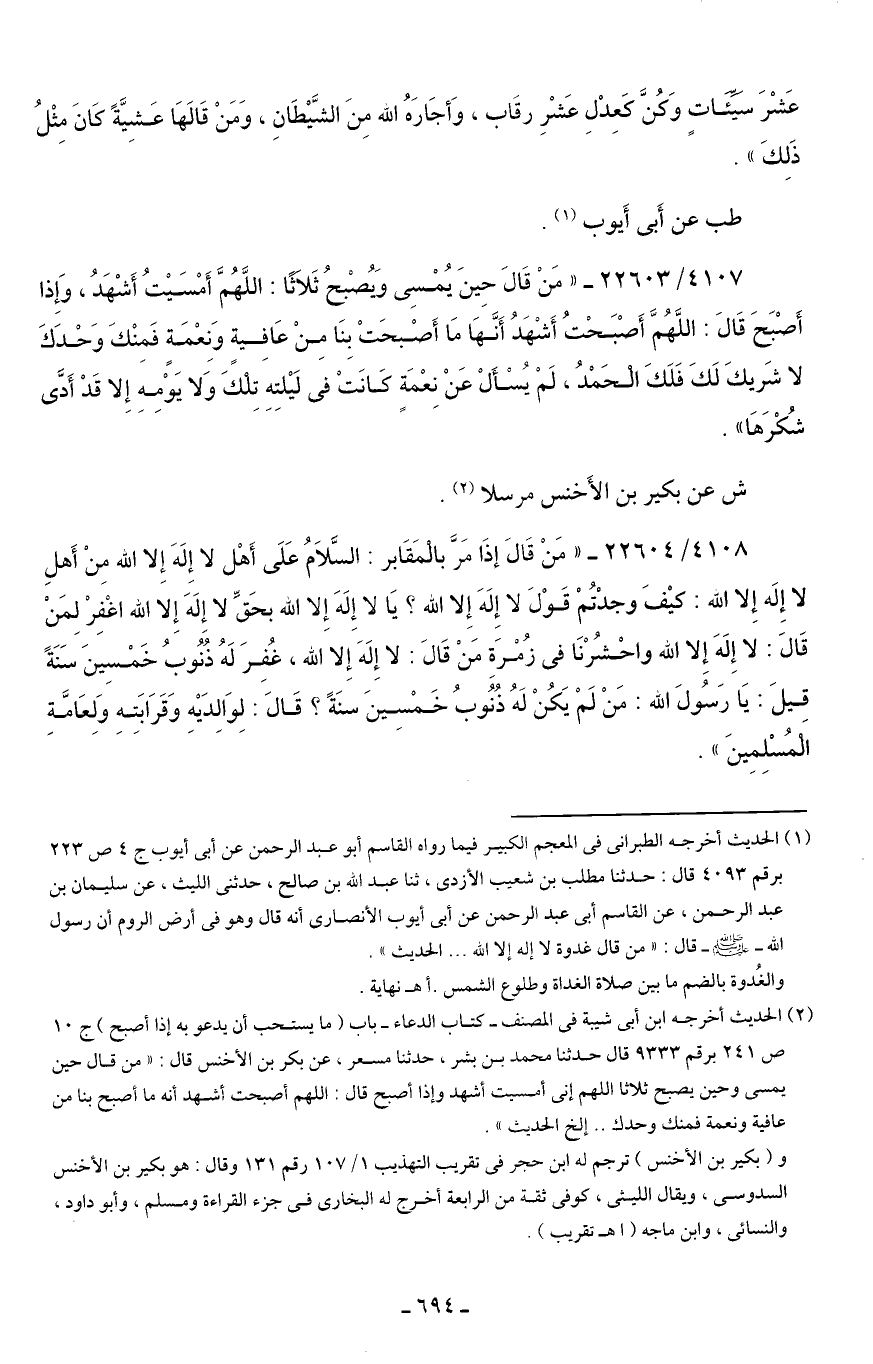 عَشْرَ سَيِّئَاتٍ وَكُنَّ كَعِدْلِ عَشْرِ رِقَابٍ ، وَأَجَارَهُ الله مِنَ الشَّيْطَانِ ، وَمَنْ قَالَهَا عَشِيَّةً كَانَ مِثْلُ
ذَلِكَ » .
طب عن أَبى أَيوب (١) .
٢٢٦٠٣/٤١٠٧ ـ « مَنْ قَالَ حِينَ يُمْسِى وَيُصْبِحُ ثَلاَثًا : اللَّهُمَّ أَمْسَيْتُ أَشْهَدُ ، وَإِذَا
أَصْبَحَ قَالَ : اللَّهُمَّ أَصْبَحْتُ أَشْهَدُ أَنَّهَا مَا أَصْبَحَتْ بِنَا مِنْ عَافِيةٍ وَنِعْمَةٍ فَمِنْكَ وَحْدَكَ
لا شَرِيكَ لَكَ فَلَكَ الْحَمْدُ ، لَمْ يُسْأَلْ عَنْ نِعْمَةٍ كَانَتْ فِى لَيْلَتِهِ تِلْكَ وَلاَ يَوْمِهِ إِلا قَدْ أَدَّى
شُكْرَهَا» .
ش عن بكير بن الأَخنس مرسلا (٢) .
٢٢٦٠٤/٤١٠٨ ـ « مَنْ قَالَ إِذَا مَرَّ بِالْمَقَابِرِ : السَّلاَمُ عَلَى أَهْلِ لا إِلَهَ إِلا الله مِنْ أَهلِ
لا إِلَه إِلا الله : كَيْفَ وجدْتُمْ قَوْلَ لا إِلَهَ إِلا الله ؟ يَا لا إِلَهَ إِلا الله بِحَقِّ لا إِلَهَ إِلا الله اغْفِرْ لِمَنْ
قَالَ : لا إِلَهَ إِلا الله واحْشُرْنَا فِى زُمْرَةِ مَنْ قَالَ : لا إِلَهَ إِلا الله ، غُفِرَ لَهُ ذُنُوبُ خَمْسِينَ سَنَةً
قِيلَ : يَا رَسُولَ الله : مَنْ لَمْ يَكُنْ لَهُ ذُنُوبُ خَمْسِينَ سنَةً ؟ قَالَ : لِوَالِدَيْهِ وَقَرَابَتِهِ وَلِعَامَّةِ
الْمُسْلِمِينَ » .
(١) الحديث أخرجه الطبرانى فى المعجم الكبير فيما رواه القاسم أبو عبد الرحمن عن أبى أيوب ج ٤ ص ٢٢٣
برقم ٤٠٩٣ قال : حدثنا مطلب بن شعيب الأزدى ، ثنا عبد الله بن صالح ، حدثنى الليث ، عن سليمان بن
عبد الرحمن ، عن القاسم أبى عبد الرحمن عن أبى أيوب الأنصارى أنه قال وهو فى أرض الروم أن رسول
الله ـ ﷺ ـ قال : « من قال غدوة لا إله إلا الله ... الحديث » .
والغُدوة بالضم ما بين صلاة الغداة وطلوع الشمس .أ هـ نهاية .
(٢) الحديث أخرجه ابن أبى شيبة فى المصنف ـ كتاب الدعاء ـ باب ( ما يستحب أن يدعو به إذا أصبح ) ج ١٠
ص ٢٤١ برقم ٩٣٣٣ قال حدثنا محمد بن بشر ، حدثنا مسعر ، عن بكر بن الأخنس قال : « من قال حين
يمسى وحين يصبح ثلاثا اللهم إنى أمسيت أشهد وإذا أصبح قال : اللهم أصبحت أشهد أنه ما أصبح بنا من
عافية ونعمة فمنك وحدك .. إلخ الحديث » .
و ( بكير بن الأخنس ) ترجم له ابن حجر فى تقريب التهذيب ١/ ١٠٧ رقم ١٣١ وقال : هو بكير بن الأخنس
السدوسى ، ويقال الليثى ، كوفى ثقة من الرابعة أخرج له البخارى فى جزء القراءة ومسلم ، وأبو داود ،
والنسائى ، وابن ماجه ( ا هـ تقريب ) .
ـ ٦٩٤ ـ